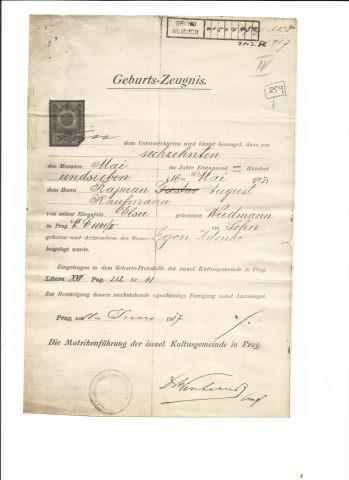 IV
859
Geburts-Zeugnis.
dem Unterzeichneten wird hiemit bezeugt, dass am
sechzehnten
des Monates Mai im Jahre Eintausend Hundert
undsieben 16 Mai
dem Herrn Rajman August
Kaufmann
von seiner Ehegattin Elsa geborenen Weidmann
in Prag ein Sohn
geboren und demselben der Name Egon Zdenko
beigelegt wurde.
Eingetragen in dem Geburts-Protokolle der israel. Kultusgemeinde in Prag.
Litera XVI Pag. 212 Nr. 41
Zur Bestätigung dessen nachstehende eigenhändige Fertigung nebst Amtssiegel.
Prag, am Juni 17
Die Matrikenführung der israel. Kultusgemeinde in Prag.